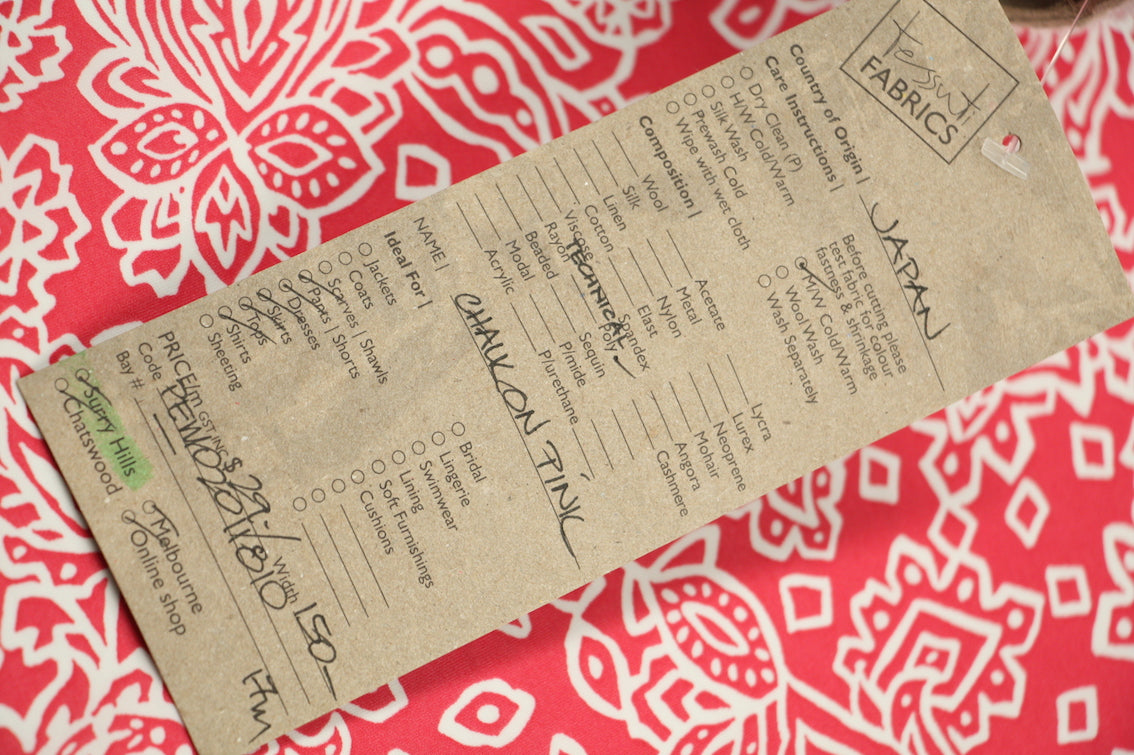 Tessuti
FABRICS
Country of Origin | JAPAN
Care Instructions |
Dry Clean (P)
H/W Cold/Warm
Silk Wash
Prewash Cold
Wipe with wet cloth
Before cutting please
test fabric for colour
fastness & shrinkage
M/W Cold/Warm
Wool Wash
Wash Separately
Composition |
Wool
Silk
Linen
Cotton
Viscose
Rayon
Beaded
Modal
Acrylic
Acetate
Metal
Nylon
Elast
Spandex
TECHNICAL Poly
Sequin
P/mide
P/urethane
Lycra
Lurex
Neoprene
Mohair
Angora
Cashmere
NAME | CHALK ON PINK
Ideal For |
Jackets
Coats
Scarves | Shawls
Pants | Shorts
Dresses
Skirts
Tops
Shirts
Sheeting
Bridal
Lingerie
Swimwear
Lining
Soft Furnishings
Cushions
PRICE/m GST INC $ 29.-/ Width 150-
Code
Bay # 17m
Surry Hills
Chatswood
Melbourne
Online shop